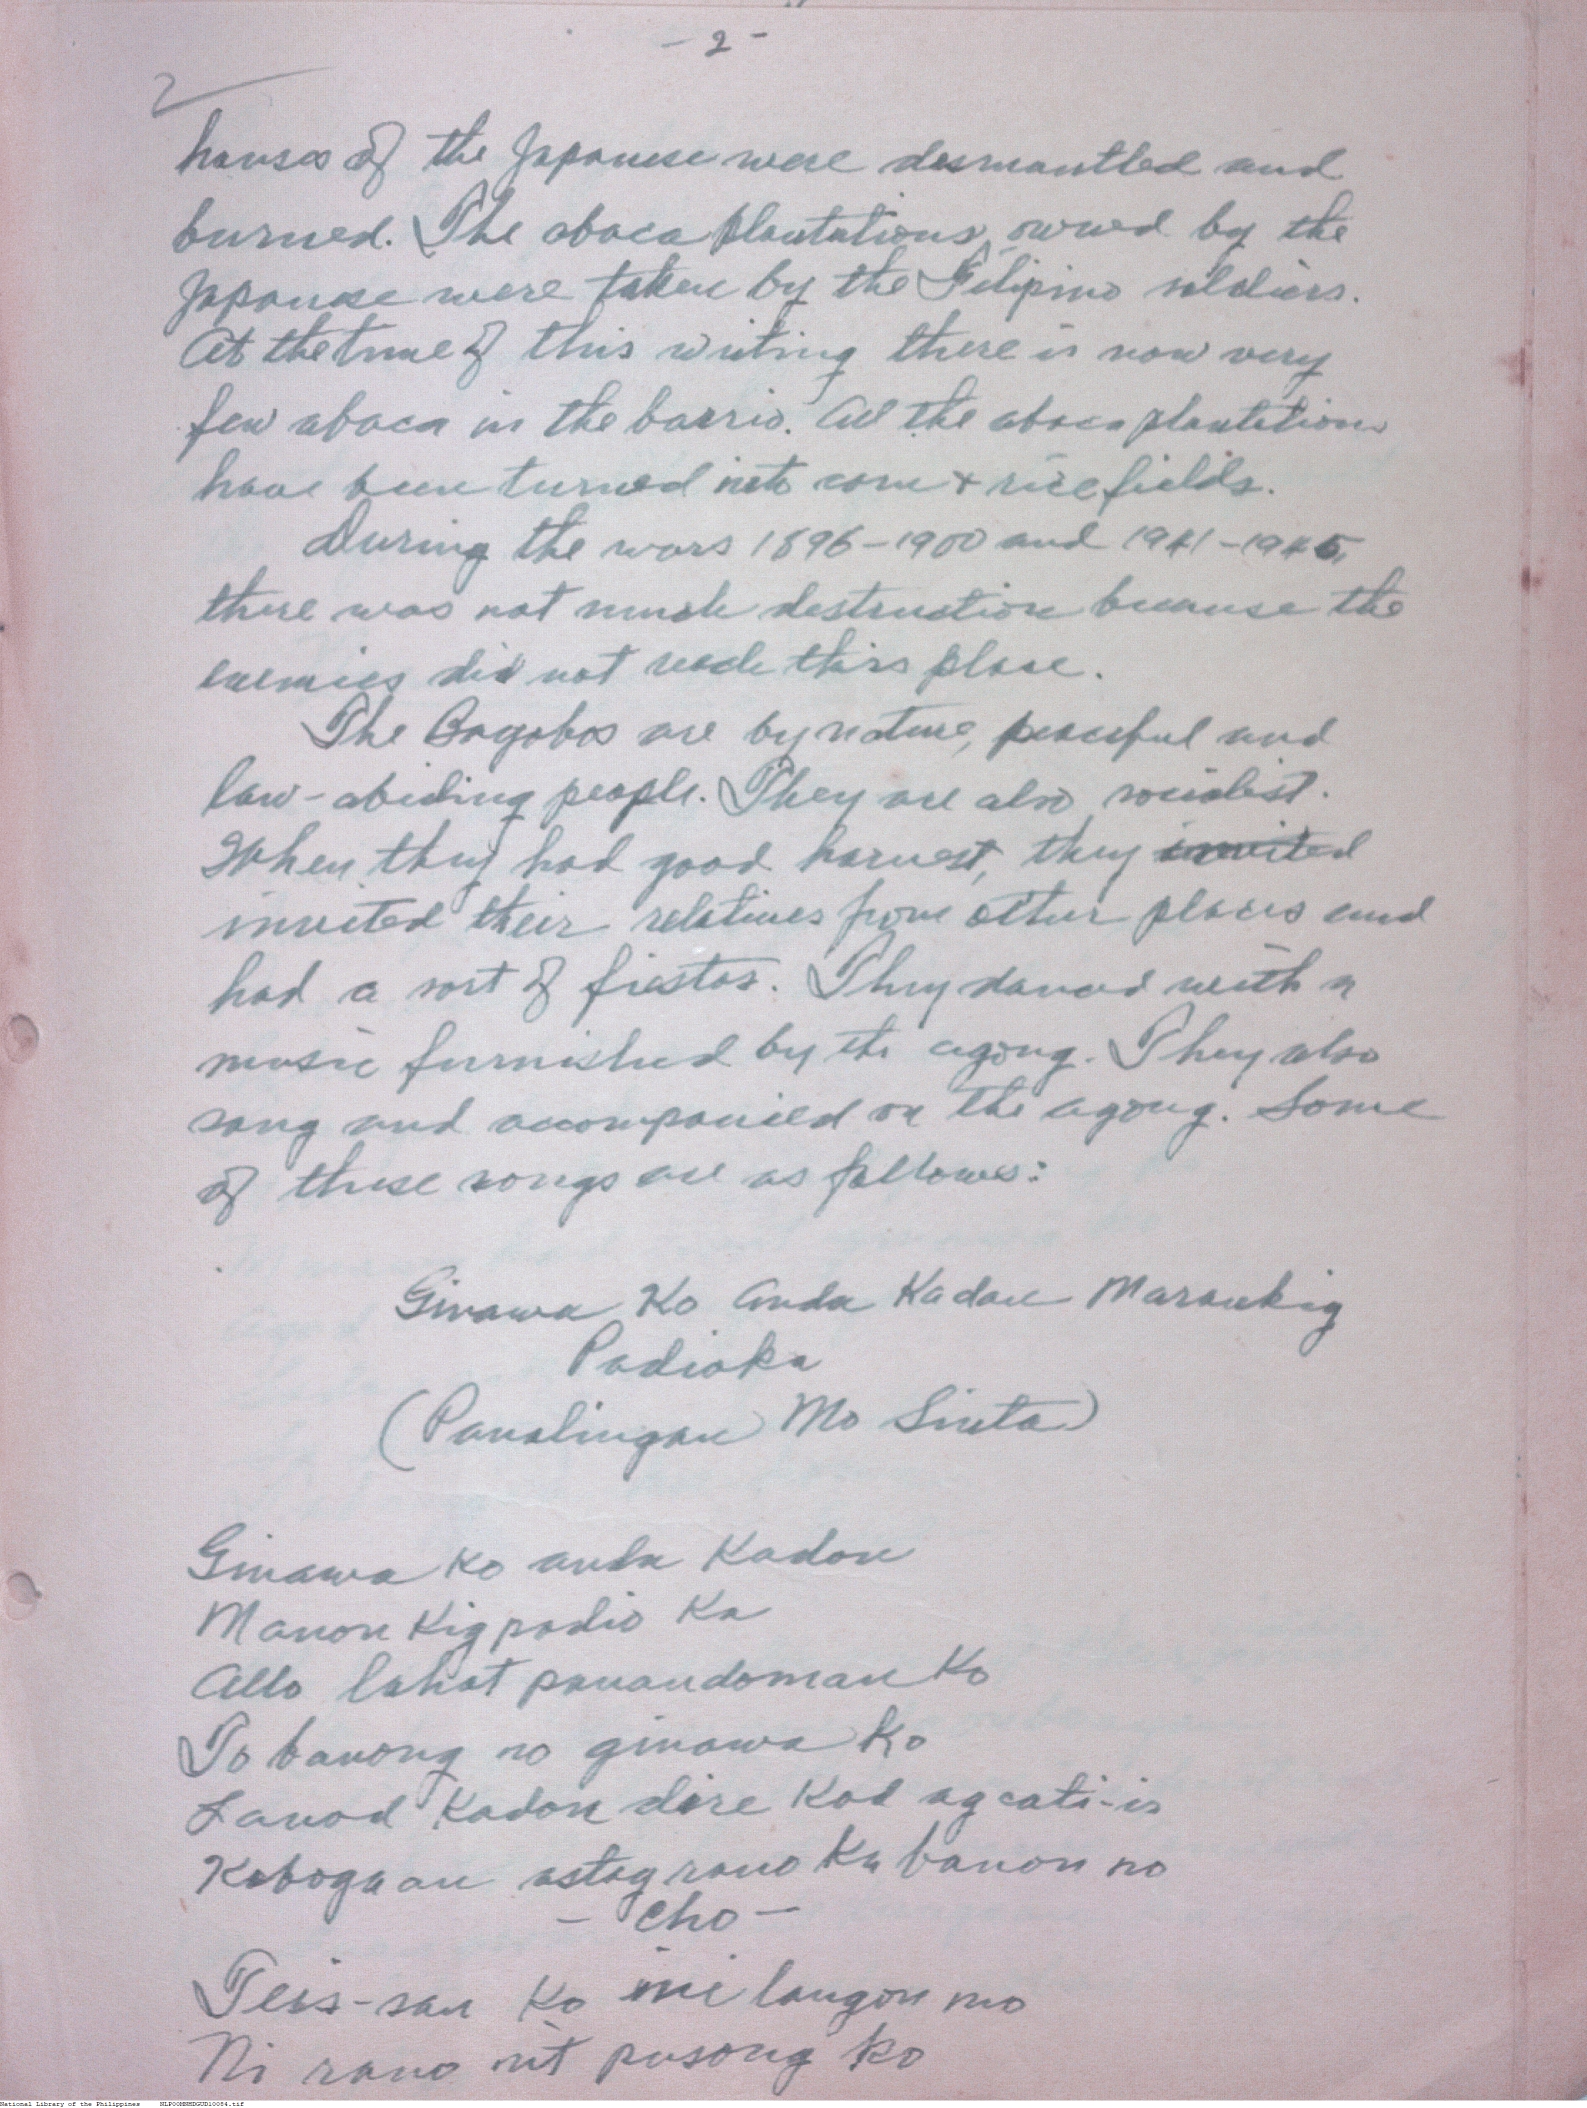 - 2 -
2
houses of the Japanese were desmantled and
burned. The abaca plantations owned by the
Japanese were taken by the Filipino soldiers.
At the time of this writing there is now very
few abaca in the barrio. All the abaca plantations
have been turned into corn + rice fields.
During the wars 1896-1900 and 1941-1945,
there was not much destruction because the
enemies did not reach this place.
The Bagobos are by nature, peaceful and
law-abiding people. They are also socialist.
When they had good harvest, they invited
invited their relatives from other places and
had a sort of fiestas. They danced with a
music furnished by the agong. They also
sang and accompanied on the agong. Some
of these songs are as follows:
Ginawa Ko Anda Kadan Maronkig
Padioka
(Panalingan Mo Sinta)
Ginawa Ko anda Kadon
Manon Kig padio Ka
Allo lahat panandoman Ko
To banong no ginawa Ko
Lanod Kadon dire Kad agcati-is
Kabogaan astag rano Ka banon no
- Cho -
Teis-san Ko ini langon mo
Ni rano nit pusong Ko
National Library of the Philippines NLP00MNHDGUD10084.tif